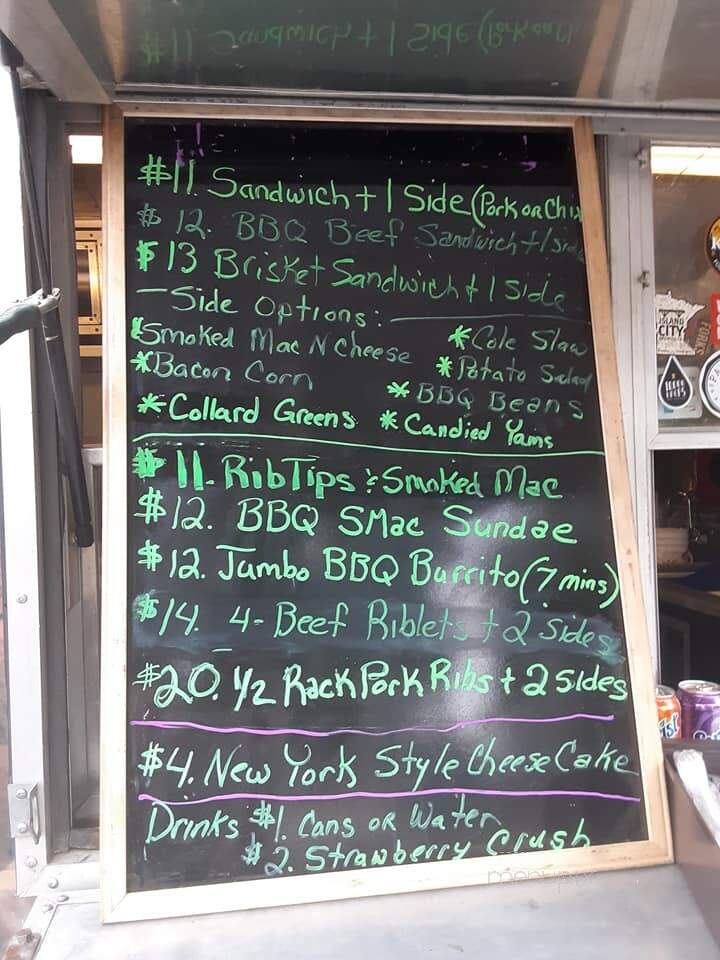 $11. Sandwich + 1 Side (Pork or Chix
$ 12. BBQ Beef Sandwich + 1 Side
$ 13 Brisket Sandwich + 1 Side
- Side Options:
*Smoked Mac N Cheese *Cole Slaw
*Bacon Corn *Potato Salad
*BBQ Beans
*Collard Greens *Candied Yams
$ 11. Rib Tips & Smoked Mac
$12. BBQ SMac Sundae
$12. Jumbo BBQ Burrito (7 mins)
$14. 4- Beef Riblets + 2 Sides
$20. 1/2 Rack Pork Ribs + 2 Sides
$4. New York Style Cheese Cake
Drinks $1. Cans or Water
$2. Strawberry Crush
ISLAND
CITY